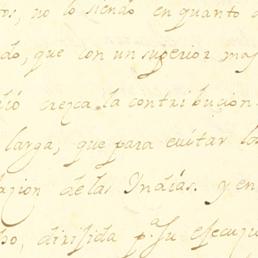 os, no lo siendo en quanto a
do, que con un superior ma
dió crezca la contribucion
larga, que para evitar lo
lazion de las Indias. y en
ho, dirijida p.ª su efecuz